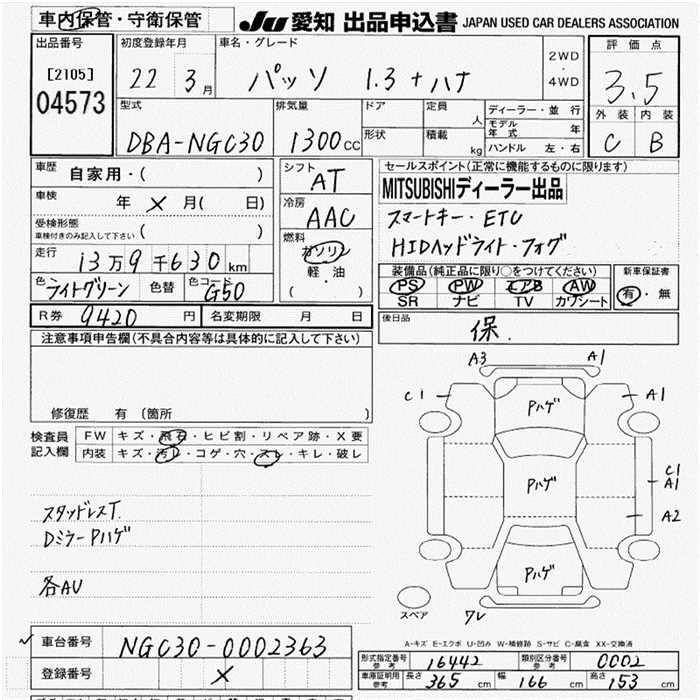 車内保管・守衛保管
JU 愛知 出品申込書 JAPAN USED CAR DEALERS ASSOCIATION
出品番号
[2105]
04573
初度登録年月
22 3月
車名・グレード
パッソ 1.3+ハナ
2WD
・
4WD
評価点
3.5
外装 内装
C B
型式
DBA-NGC30
排気量
1300cc
ドア
形状
定員 人
積載 kg
ディーラー・並行
モデル年式 年
ハンドル 左・右
車歴
自家用・( )
車検
年 × 月( 日)
受検形態
車検付きのみ記入して下さい ( )
走行
13万9千630km
色 ライトグリーン 色替 色コード G50
シフト
AT
冷房
AAC
燃料
ガソリン
軽・油
( )
セールスポイント(正常に機能するものに限ります)
MITSUBISHIディーラー出品
スマートキー・ETC
HIDヘッドライト・フォグ
装備品(純正品に限り○をつけてください)
PS PW エアB AW
SR ナビ TV カワシート
新車保証書
有・無
R券 9420円 名変期限 月 日
後日品
保.
注意事項申告欄(不具合内容等は具体的に記入して下さい)
修復歴 有 (箇所 )
検査員記入欄
FW キズ・飛石・ヒビ割・リペア跡・X要
内装 キズ・汚レ・コゲ・穴・スレ・キレ・破レ
スタッドレスT.
DミラーPハゲ
各AU
A3 A1
C1 A1
Pハゲ
Pハゲ
C1
A1
A2
Pハゲ
スペア
ワレ
A-キズ E-エクボ U-凹み W-補修跡 S-サビ C-腐食 XX-交換済
車台番号 NGC30-0002363
登録番号 ×
形式指定番号 参考 16442
類別区分番号 参考 0002
車庫証明用 参考 長さ 365cm 幅 166cm 高さ 153cm